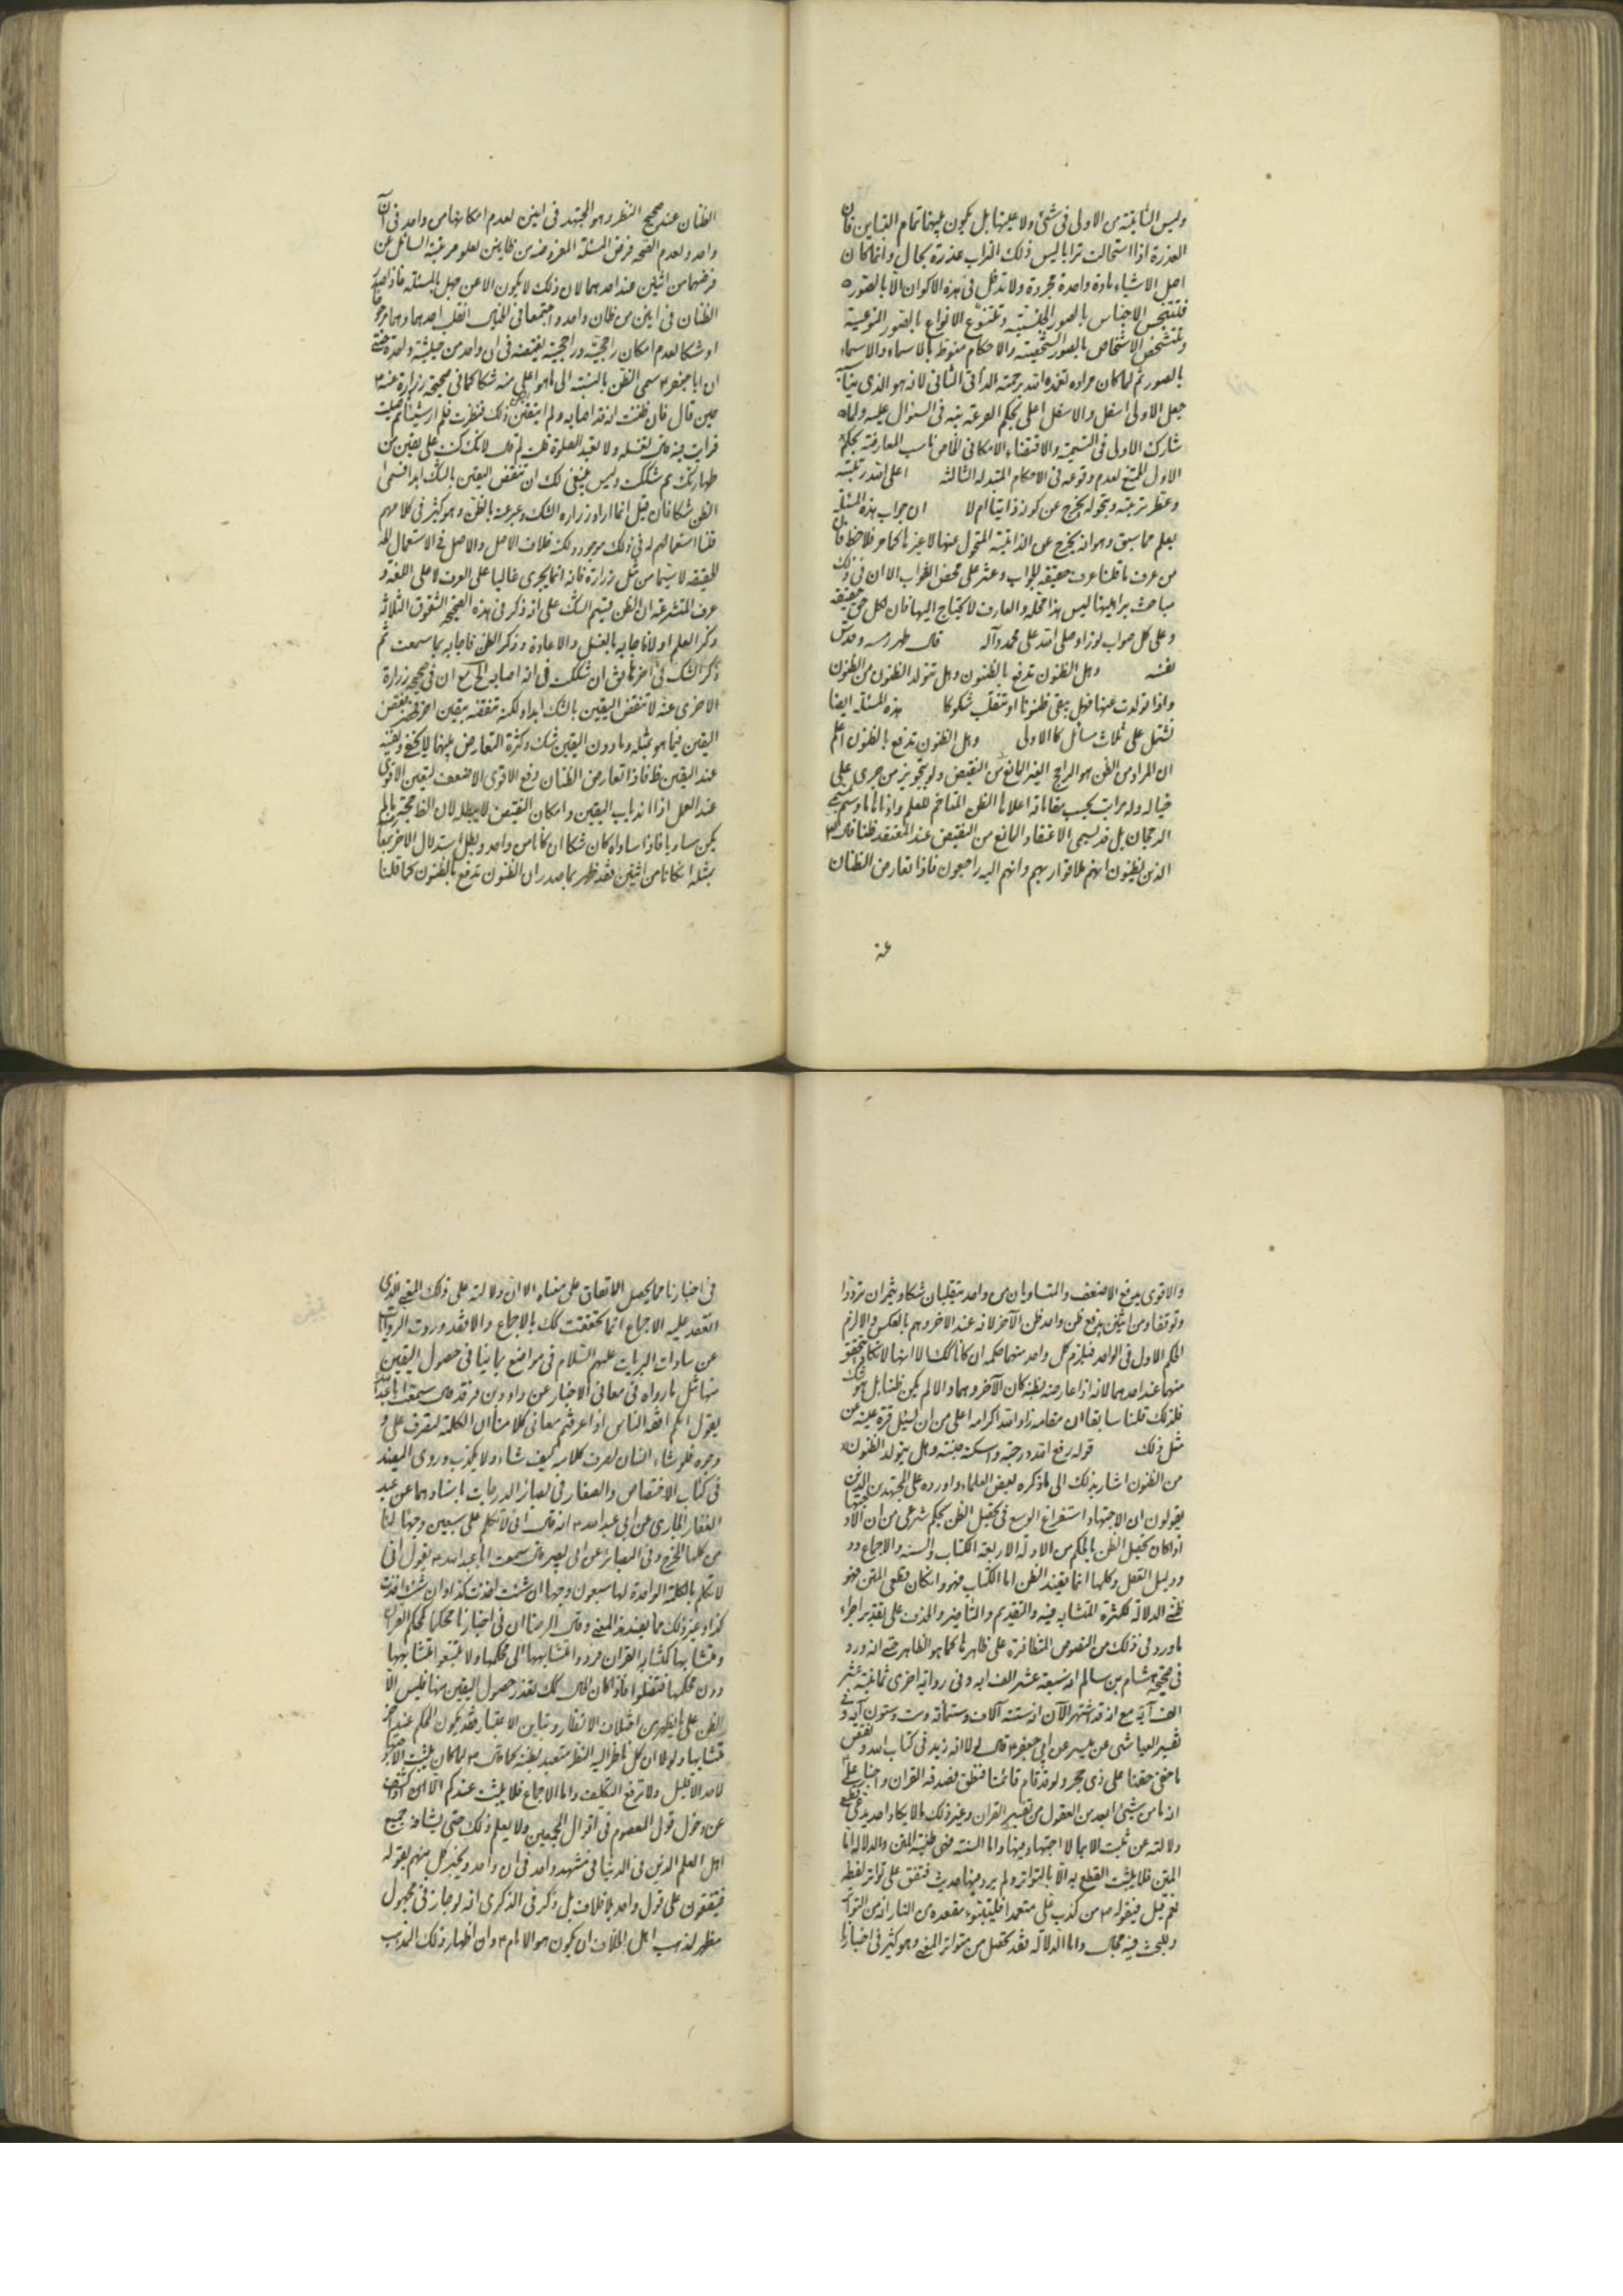 وليس الثانية من الاولى في شئ ولا عينها بل يكون بينهما تمام التباين فان
العذرة اذا استحالت ترابا ليس ذلك التراب عذرة بحال وانما كان
اصل الاشياء مادة واحدة مجردة ولا تدخل في هذه الاكوان الا بالصورة
فتتجنس الاجناس بالصور الجنسية وتتنوع الانواع بالصور النوعية
وتتشخص الاشخاص بالصور الشخصية والاحكام منوطة بالاسماء والاسماء
بالصور ثم لما كان مراده تغمده الله برحمته الثاني لانه هو الذي
جعل الاولى اسفل والاسفل اعلى بحكم في السؤال عليه
شارك الاولى في التسمية والاقتضاء الامكاني ناسب المعارضة بحكم
الاول لعدم وقوعه في الاحكام الثالثة اعلى الله رتبته
وعطر تربته وبتحوله يخرج عن كونه ذاتيا ام لا ان جواب هذه المسئلة
يعلم مما سبق وهو انه يخرج عن الذاتية المتحول عنها لا غيرها كما مر فلاحظ فان
من عرف ما قلنا عرف حقيقة الجواب وعثر على محض الصواب الا ان في ذلك
مباحث براهينها ليس هذا محله والعارف لا يحتاج اليها فان لكل حق حقيقة
وعلى كل صواب نورا وصلى الله على محمد وآله قال طهر رمسه وقدس
نفسه وهل الظنون تدفع بالظنون وهل تتولد الظنون من الظنون
واذا تولدت عنها فهل يبقى ظنونا او تنقلب شكوكا هذه المسئلة ايضا
تشتمل على ثلاث مسائل كالاولى وهل الظنون تدفع بالظنون اعلم
ان المراد من الظن هو الراجح الغير المانع من النقيض ولو بتجويز من جرى على
خياله وله مراتب بحسب مقاماته اعلاها الظن المتاخم للعلم وادناها ما وسم
الرجحان بل قد يسمى الاعتقاد المانع من النقيض عند المعتقد ظنا قال تع
الذين يظنون انهم ملاقوا ربهم وانهم اليه راجعون فاذا تعارض الظنان
عند
الظنان عند صحيح النظر وهو المجتهد في اثنين لعدم امكانهما من واحد في آن
واحد ولعدم الصحة فرض المسئلة المفروضة من ظانين لعلو مرتبة السائل عن
فرضهما من اثنين عند احدهما لان ذلك لا يكون الا عن جهل بالمسئلة فاذا
الظنان في اثنين من ظان واحد واجتمعا في انقلب احدهما وهما
او شكا لعدم امكان راجحية وراجحية نقيضه في ان واحد من حيثية واحدة حتى
ان ابا جعفر ع سمى الظن بالنسبة الى ما هو اعلى منه شكا كما في صحيحة زرارة عنه ع
حين قال فان ظننت انه قد اصابه ولم اتيقن ذلك فنظرت فلم ار شيئا ثم صليت
فرايت فيه قال تغسله ولا تعيد الصلوة قلت لم قال لانك كنت على يقين من
طهارتك ثم شككت وليس ينبغي لك ان تنقض اليقين بالشك ابدا فسمى
الظن شكا فان قيل انما اراد زرارة الشك وعبر عنه بالظن وهو كثير في كلامهم
قلنا استعمالهم له في ذلك موجود ولكنه خلاف الاصل والاصل في الاستعمال
الحقيقة لا سيما من مثل زرارة فانه انما يجري غالبا على العرف لا على اللغة و
عرف المتشرعة ان الظن قسيم الشك على انه ذكر في هذه الصحيحة الشقوق الثلاثة
ذكر العلم اولا فاجابه بالغسل والاعادة وذكر الظن فاجابه بما سمعت ثم
ذكر الشك في اخرها قال ان شككت في انه اصابه الخ مع ان في صحيحة زرارة
الاخرى عنه لا تنقض اليقين بالشك ابدا ولكنه تنقضه بيقين اخر
اليقين فيما هو بمثله وما دون اليقين شك وكثرة التعارض بينهما لا يخفى
عند اليقين فاذا تعارض الظنان دفع الاقوى الاضعف لتعين الاقوى
عند العمل اذا ذهاب اليقين وامكان النقيض لا يبطله لان الظن حجة ما لم
يكن مساويا فاذا ساواه كان شكا ان كانا من واحد وبطل استدلال الاخر
بمثله ان كانا من اثنين فقد ظهر بما صدر ان الظنون تدفع بالظنون كما قلنا
والاقوى يدفع الاضعف والمتساويان من واحد ينقلبان شكا ويثمران ترددا
وتوقفا ومن اثنين يدفع ظن واحد ظن الآخر لانه عند الاخر وهم بالعكس والا لزم
الحكم الاول في الواحد فيلزم كل واحد منهما حكمه ان كانا كك لا
منهما عند احدهما لانه اذا عارضه نظيره كان الآخر وهما والا لم يكن ظنا بل هو شك
فلذلك قلنا سابقا ان مقامه زاد الله اكرامه اعلى من ان يسئل قرة عينه عن
مثل ذلك قوله رفع الله درجته واسكنه جنته وهل يتولد الظنون
من الظنون اشار بذلك الى ما ذكره بعض العلماء واورده على المجتهدين الذين
يقولون ان الاجتهاد استفراغ الوسع في تحصيل الظن بحكم شرعي من ان الادلة
اذا كان تحصيل الظن بالحكم من الادلة الاربعة الكتاب والسنة والاجماع
ودليل العقل وكلها انما تفيد الظن اما الكتاب فهو وان كان قطعي المتن فهو
ظني الدلالة لكثرة المتشابه فيه والتقديم والتأخير والحذف على تقدير اجراء
ما ورد في ذلك من النصوص المتظافرة على ظاهرها كما هو الظاهر حتى انه ورد
في صحيحة هشام بن سالم انه سبعة عشر الف اية وفي رواية اخرى ثمانية عشر
الف آية مع انه قد اشتهر الآن انه ستة آلاف وستمائة وست وستون آية وفي
تفسير العياشي عن ميسر عن ابي جعفر ع قال لولا انه زيد في كتاب الله ونقص
ما خفي حقنا على ذي حجى ولو قد قام قائمنا فنطق لصدقه القران
انه ما من شيئ ابعد من العقول من تفسير القران وغير ذلك مما لا يكاد احد يدعي قطع
دلالته عن ثبت الا بما لا اجتهاد فيها واما السنة فهي ظنية المتن والدلالة اما
المتن فلا يثبت القطع به الا بالتواتر ولم يرد فيها حديث متفق على تواتر لفظه
نعم قيل في قوله ص من كذب علي متعمدا فليتبوء مقعده من النار انه من
وللبحث فيه مجال واما الدلالة فقد تحصل من متواتر المعنى وهو كثير في اخبارنا
في اخبارنا مما يحصل الاتفاق على معناه الا ان دلالته على ذلك المعنى الذي
انعقد عليه الاجماع انما تحققت كك بالاجماع والا فقد وردت الروايات
عن سادات البريات عليهم السلام في مواضع بما ينافي حصول اليقين
منها مثل ما رواه في معاني الاخبار عن داود بن فرقد قال سمعت ابا عبد الله
يقول انتم افقه الناس اذا عرفتم معاني كلامنا ان الكلمة لتصرف على
وجوه فلو شاء انسان لصرف كلامه كيف شاء ولا يكذب وروى المفيد
في كتاب الاختصاص والصفار في بصائر الدرجات باسنادهما عن عبد
الغفار الجازي عن ابي عبد الله ع انه قال اني لاتكلم على سبعين وجها لنا
من كلها المخرج وفي البصائر عن ابي بصير قال سمعت ابا عبد الله ع يقول اني
لاتكلم بالكلمة الواحدة لها سبعون وجها ان شئت اخذت كذا وان شئت اخذت
كذا وغير ذلك مما يفيد هذا المعنى وقال الرضا ان في اخبارنا محكما كمحكم القران
ومتشابها كمتشابه القران فردوا متشابهها الى محكمها ولا تتبعوا متشابهها
دون محكمها فتضلوا فاذا كان الحال كك تعذر حصول اليقين منها فليس الا
الظن على ما يظهر من اختلاف الانظار وتباين الاعتبار فقد يكون المحكم عند اخر
متشابها ولولا ان كل ناظر اليه النظر متعبد بظنه كما قال ع لما كان يثبت
لاحد الا لقليل ولا ترفع التكليف واما الاجماع فلا يثبت عندكم الا اذا كشف
عن دخول قول المعصوم في اقوال المجمعين ولا يعلم ذلك حتى يشافه جميع
اهل العلم الذين في الدنيا في مشهد واحد في ان واحد ويخبر كل منهم بقوله
فيتفقون على قول واحد بلا خلاف بل ذكر في الذكرى انه لو جاز في مجهول
مظهر لمذهب اهل الخلاف ان يكون هو الامام ع وان اظهار ذلك المذهب